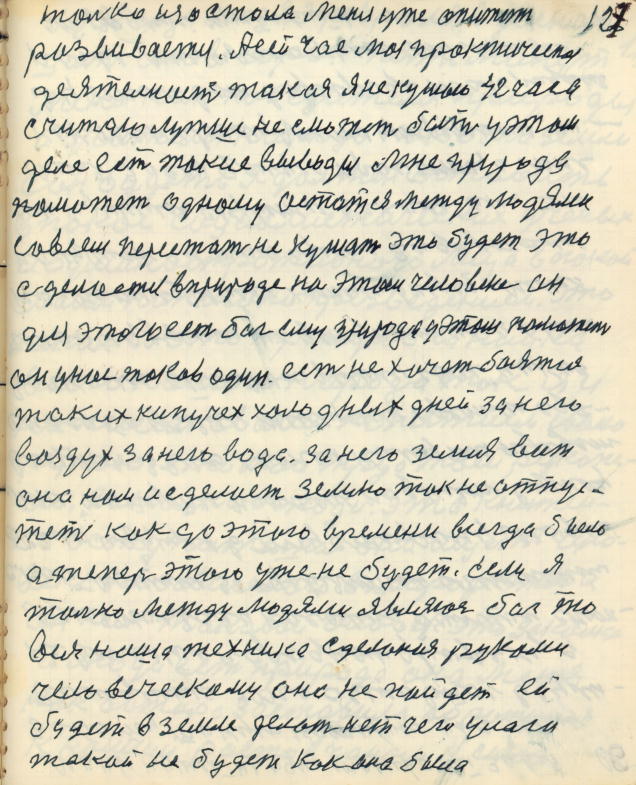 только из стола меня уже опитом 127
развивается. А сейчас моя практическая
деятелност такая я не кушаю 42 часа
считаю лутше не сможет быть у этом
деле ест такие выводы мне природа
поможет одному остатся между людями
совсем перестат не кушат это будет это
сделается в природе на этом человеке он
для этого ест бог ему природа у этом поможет
он у нас таков один. ест не хочет боятся
таких кипучех холодных дней за него
воздух за него вода. за него земля вот
она нам и сделает землю так не отпус-
тет как до этого времени всегда было
а тепер этого уже не будет. если я
толко между людями являюя бог то
вся наша техника сделоная руками
человеческому она не пойдет ей
будет в земле делат нет чего улаги
такой не будет как она была